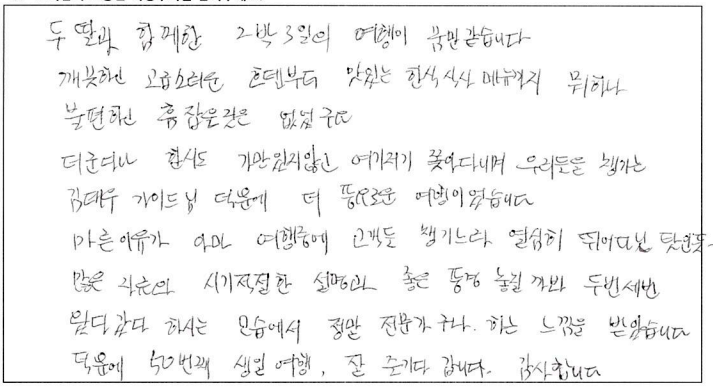 두 딸과 함께한 2박3일의 여행이 꿈만 같습니다
깨끗하고 고급스러운 호텐부터 맛있는 한식식사 메뉴까지 뭐하나
불편하고 흠 잡을것은 없었구요
더군다나 한시도 가만있지않고 여기저기 쫓아다니며 우리들을 챙기는
김태우 가이드님 덕분에 더 풍요로운 여행이었습니다
마른이유가 아마 여행중에 고객들 챙기느라 열심히 뛰어다닌 탓인듯.
많은 지식과 시기적절한 설명과 좋은 풍경 놓칠까봐 두번세번
왔다갔다 하시는 모습에서 정말 전문가구나. 하는 느낌을 받았습니다
덕분에 50번째 생일여행, 잘 즐기다 갑니다. 감사합니다